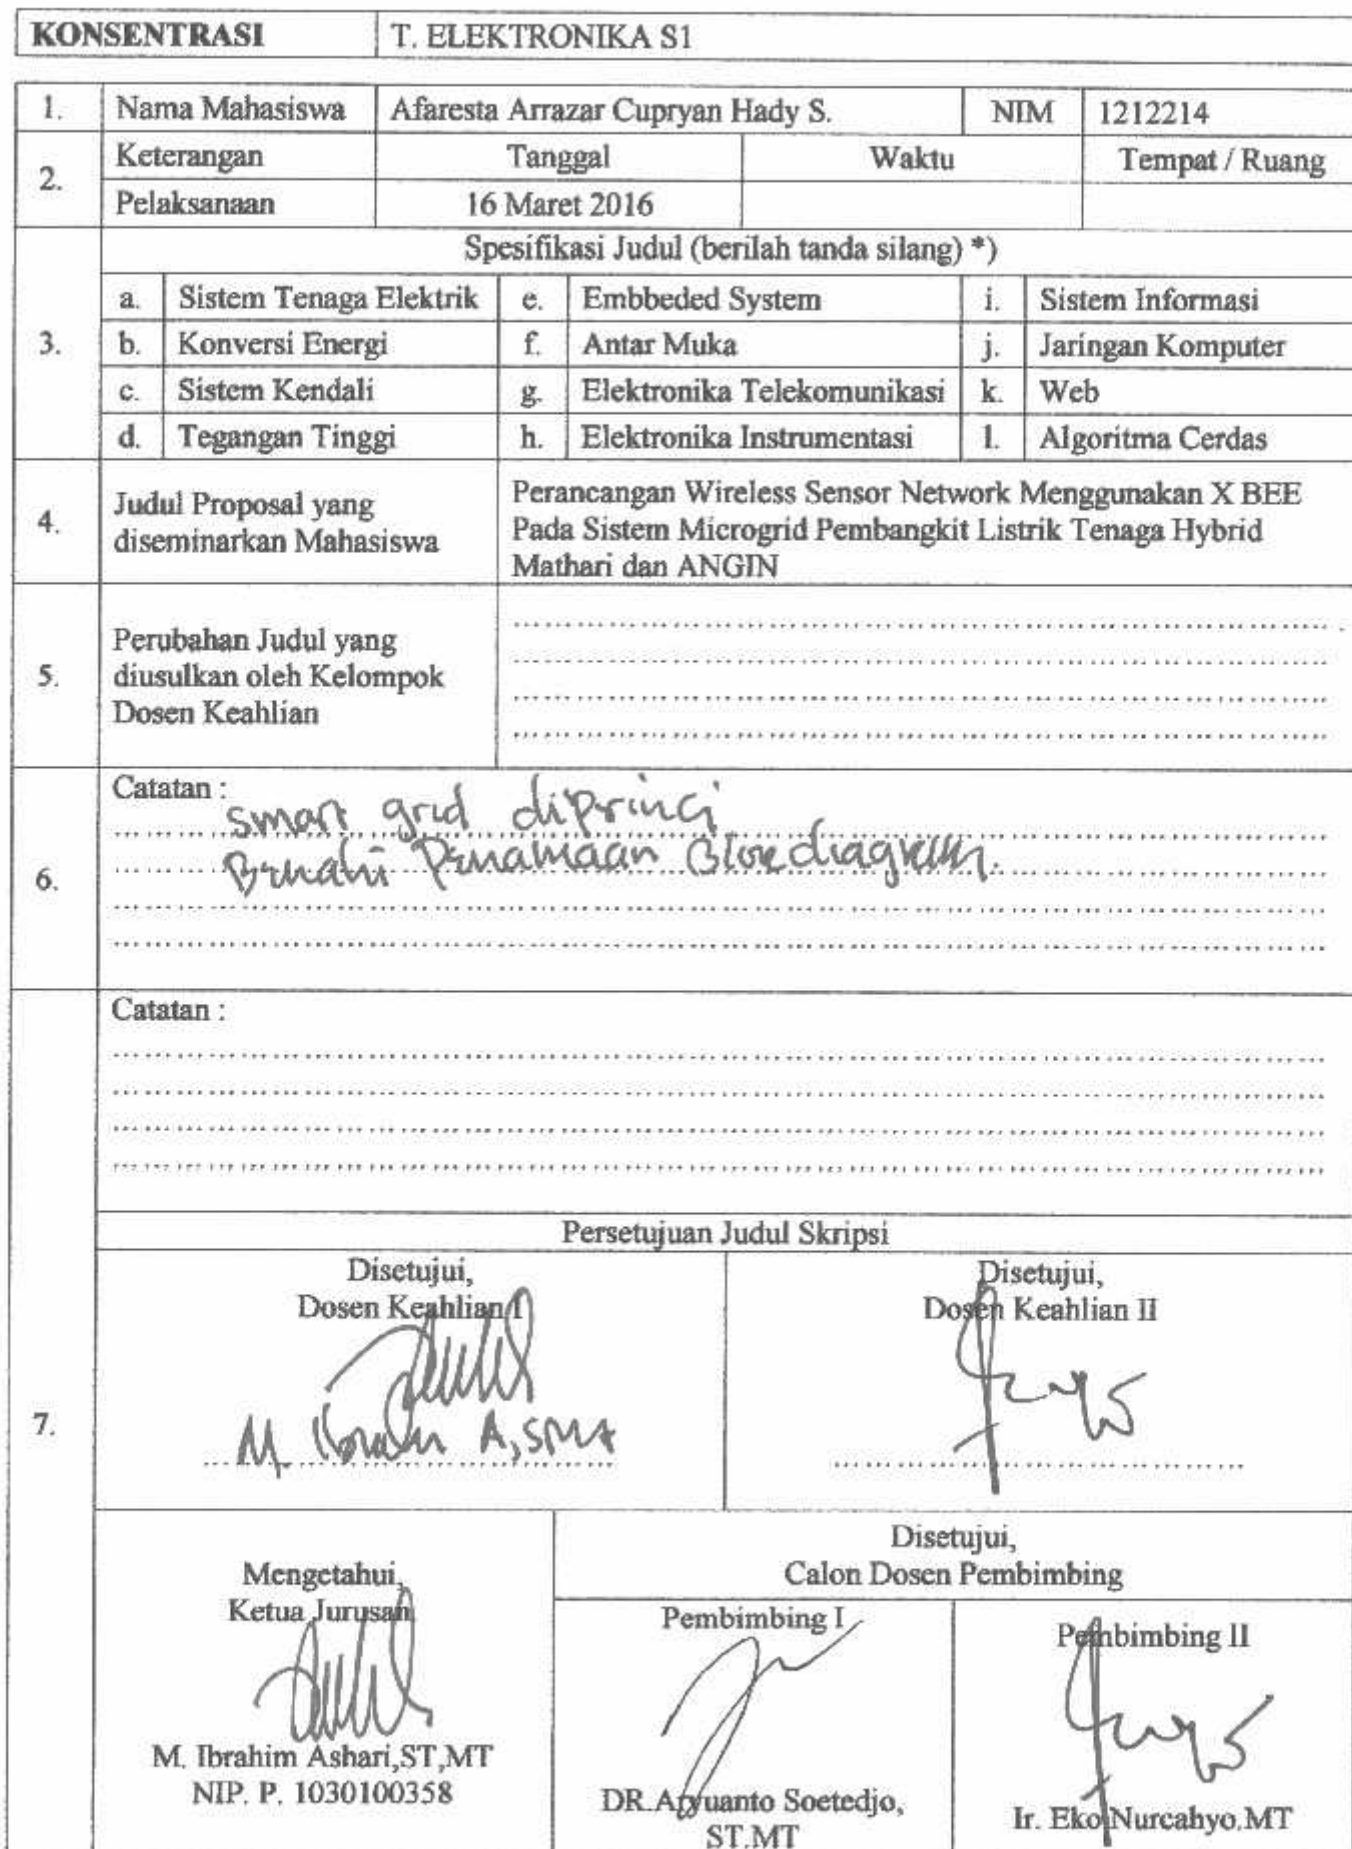 KONSENTRASI T. ELEKTRONIKA S1
1. Nama Mahasiswa Afaresta Arrazar Cupryan Hady S. NIM 1212214
2. Keterangan Tanggal Waktu Tempat / Ruang
Pelaksanaan 16 Maret 2016
Spesifikasi Judul (berilah tanda silang) *)
3.
a. Sistem Tenaga Elektrik e. Embbeded System i. Sistem Informasi
b. Konversi Energi f. Antar Muka j. Jaringan Komputer
c. Sistem Kendali g. Elektronika Telekomunikasi k. Web
d. Tegangan Tinggi h. Elektronika Instrumentasi l. Algoritma Cerdas
4.
Judul Proposal yang
diseminarkan Mahasiswa
Perancangan Wireless Sensor Network Menggunakan X BEE
Pada Sistem Microgrid Pembangkit Listrik Tenaga Hybrid
Mathari dan ANGIN
5.
Perubahan Judul yang
diusulkan oleh Kelompok
Dosen Keahlian
6.
Catatan :
smart grid diprinci
Penamaan diagram.
7.
Catatan :
Persetujuan Judul Skripsi
Disetujui,
Dosen Keahlian I
M. Ibrahim A,
Disetujui,
Dosen Keahlian II
Mengetahui,
Ketua Jurusan
M. Ibrahim Ashari,ST,MT
NIP. P. 1030100358
Disetujui,
Calon Dosen Pembimbing
Pembimbing I
DR.Aryuanto Soetedjo,
ST.MT
Pembimbing II
Ir. Eko Nurcahyo.MT